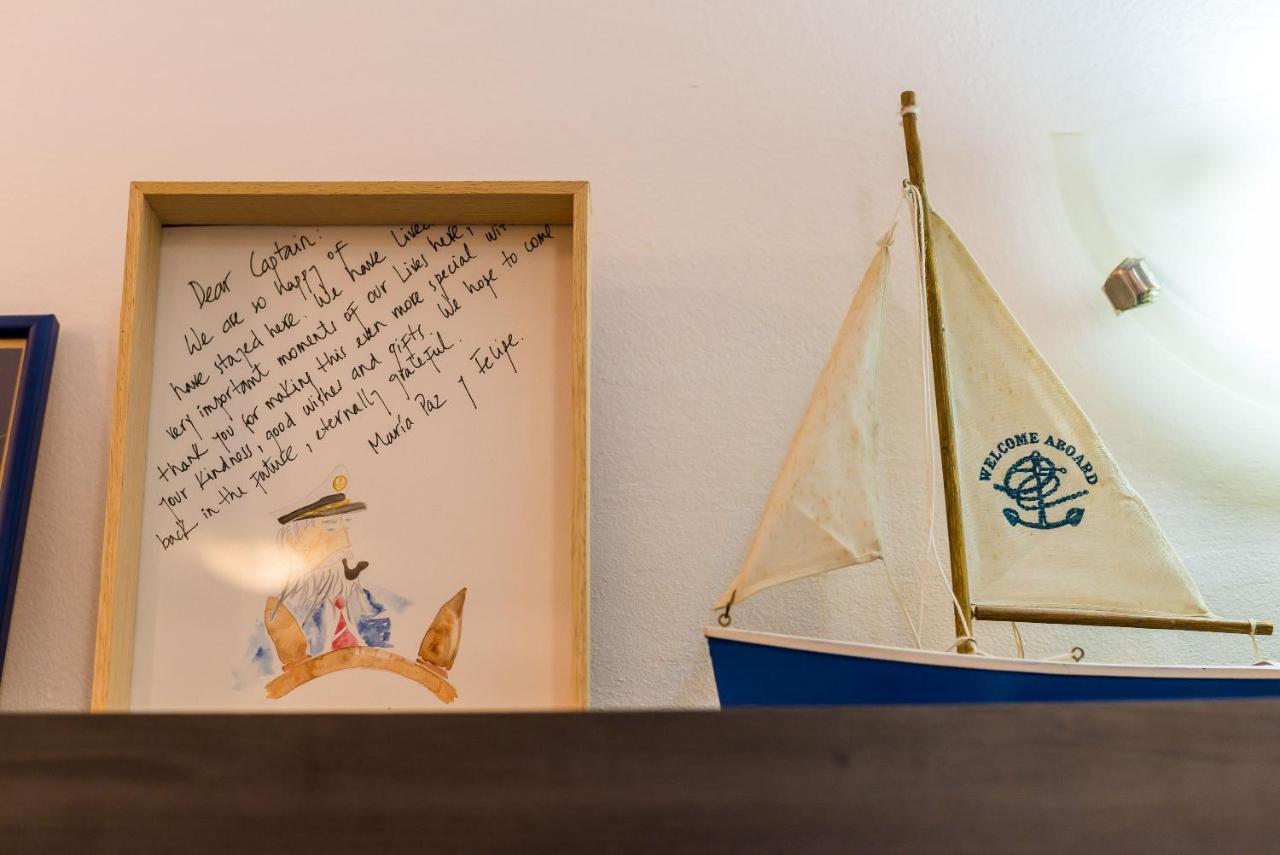 Dear Captain:
We are so happy of
have stayed here. We have Lived
very important moments of our Lives here,
thank you for making this even more special with
your kindness, good wishes and gifts. We hope to come
back in the future, eternally grateful.
María Paz y Felipe.
WELCOME ABOARD